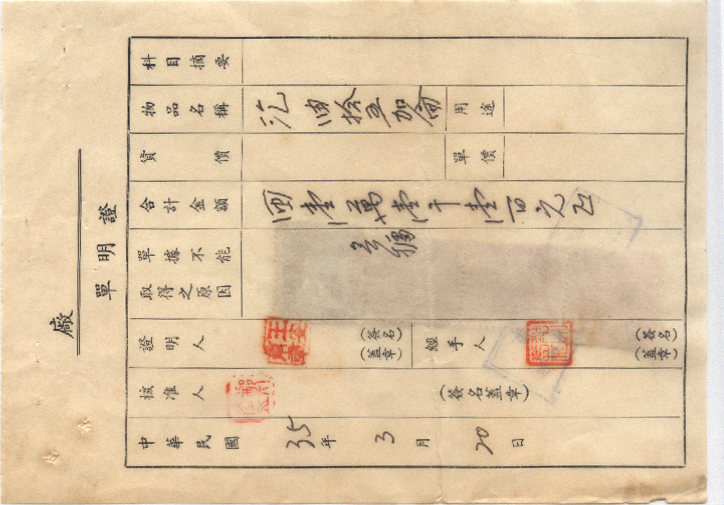 證明單　廠
科目摘要
物品名稱 汽油拾五加侖 用途
貨價 單價
合計金額 壹萬壹千壹百元正
單據不能
取得之原因
證明人 (簽名蓋章) 經手人 (簽名蓋章)
核准人 (簽名蓋章)
中華民國 35年 3月 20日